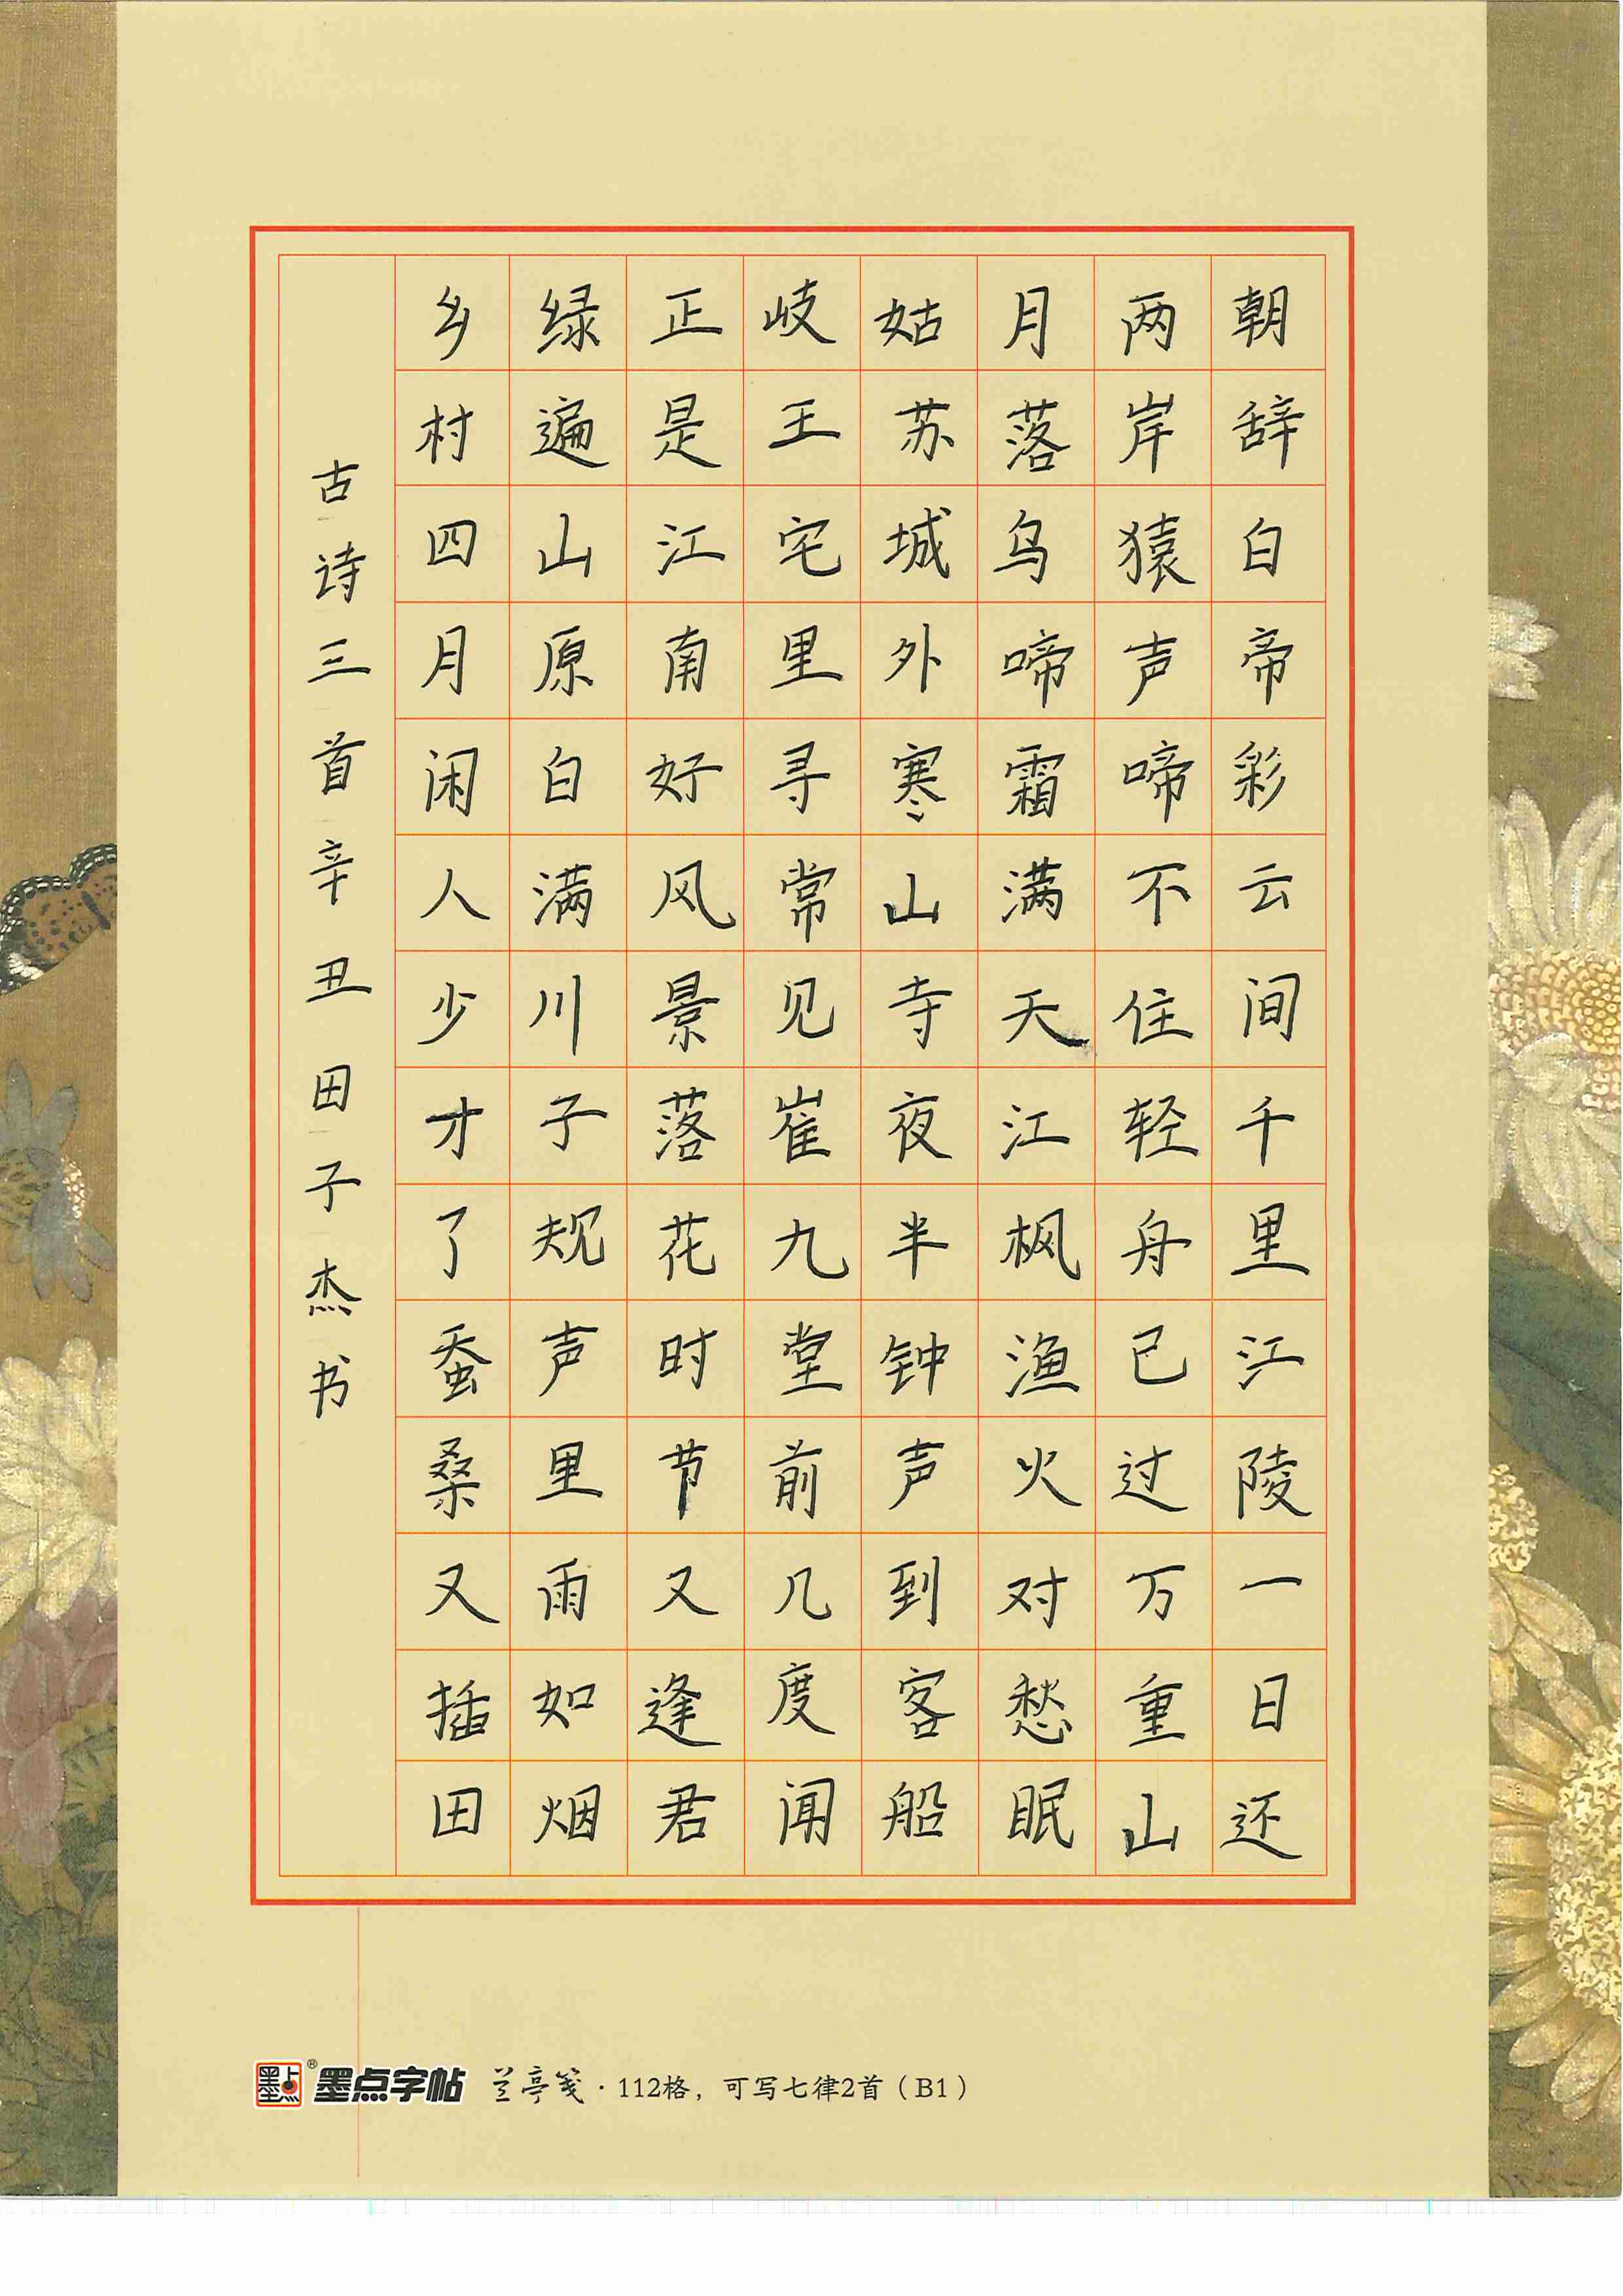 朝辞白帝彩云间千里江陵一日还
两岸猿声啼不住轻舟已过万重山
月落乌啼霜满天江枫渔火对愁眠
姑苏城外寒山寺夜半钟声到客船
岐王宅里寻常见崔九堂前几度闻
正是江南好风景落花时节又逢君
绿遍山原白满川子规声里雨如烟
乡村四月闲人少才了蚕桑又插田
古诗三首辛丑田子杰书
墨点 ® 墨点字帖 兰亭笺·112格，可写七律2首（B1）